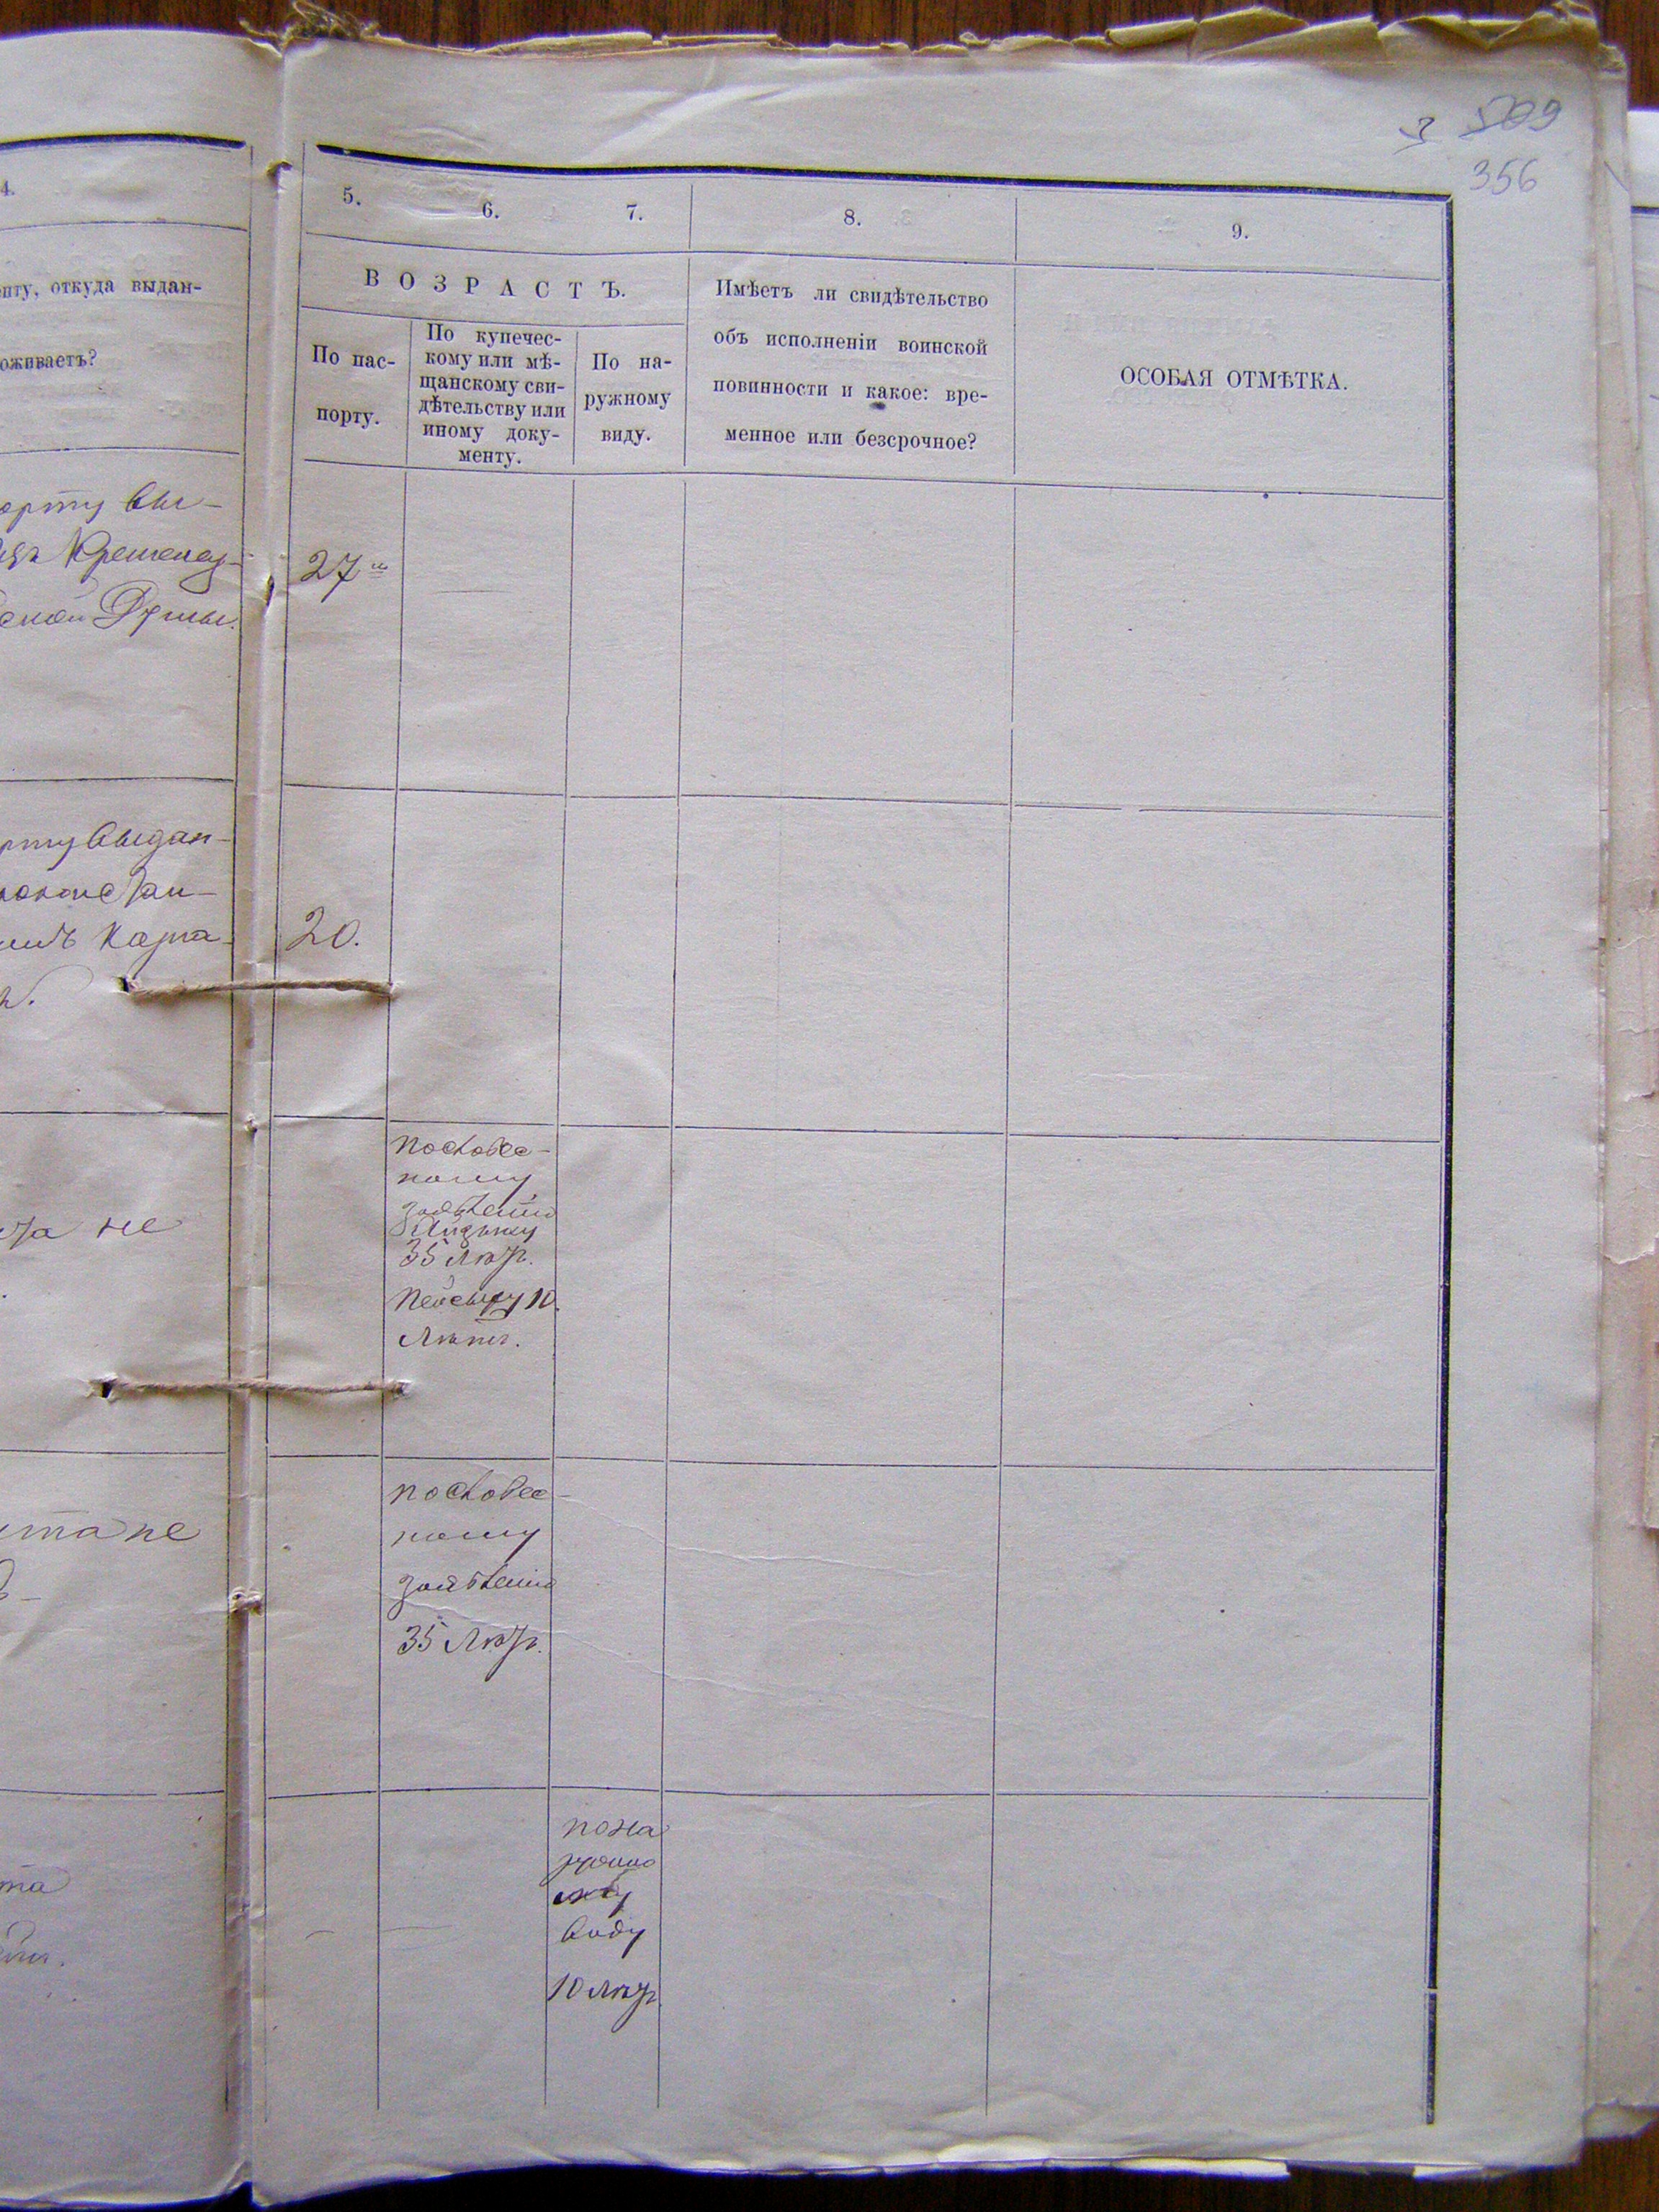 509
356
4.
пту, откуда выдан-
оживаетъ?
орту вы-
Кременчуг-
ской Думы.
рту выдан-
та не
та не
та
5.
6.
7.
8.
9.
ВОЗРАСТЪ.
По пас-
порту.
По купечес-
кому или мѣ-
щанскому сви-
дѣтельству или
иному доку-
менту.
По на-
ружному
виду.
Имѣетъ ли свидѣтельство
объ исполненіи воинской
повинности и какое: вре-
менное или безсрочное?
ОСОБАЯ ОТМѢТКА.
27
20.
пословес-
ному
заявленію
35 лѣтъ.
10
лѣтъ.
пословес-
ному
заявленію
35 лѣтъ.
пона
виду
10 лѣтъ